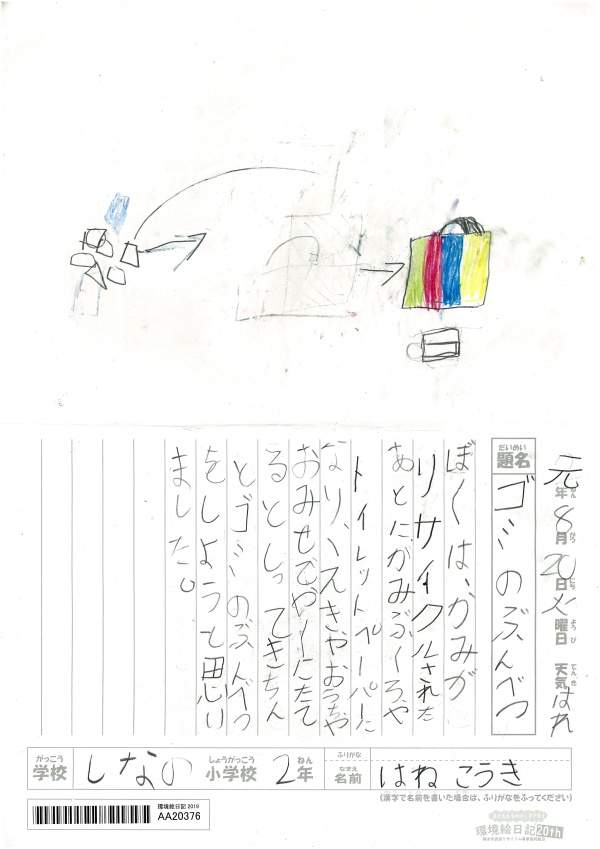 元年8月20日火曜日 天気 はれ
ねん がつ にち ようび てんき
だいめい
題名 ゴミのぶんべつ
ぼくは、かみが
リサイクルされた
あとにがみぶくろや
トイレットペーパーに
なり、えきやおうちや
おみせでやくにたて
るとしってきちん
とゴミのぶんべつ
をしようと思い
ました。
がっこう しょうがっこう ねん ふりがな
学校 しなの 小学校 2年 なまえ 名前 はねこうき
(漢字で名前を書いた場合は、ふりがなをふってください)
環境絵日記 2019
AA20376
環境絵日記 20th